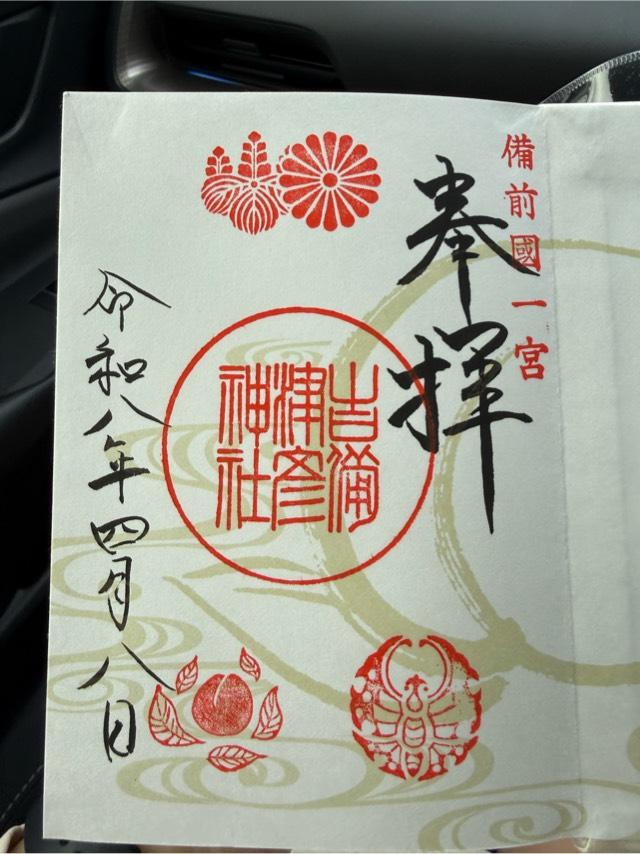 備前國一宮
奉拝
吉備
津彦
神社
令和八年四月八日